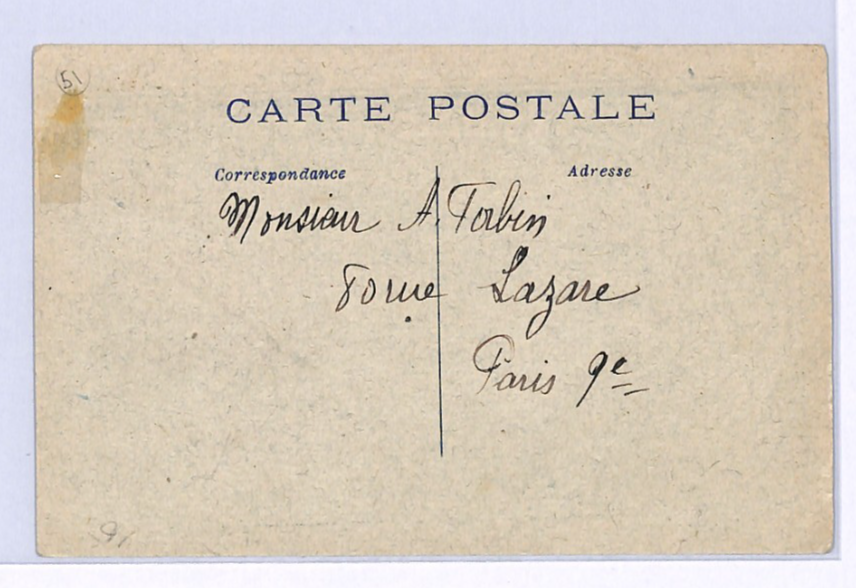 51
CARTE POSTALE
Correspondance Adresse
Monsieur A. Torbin
Lazare
Paris 9e